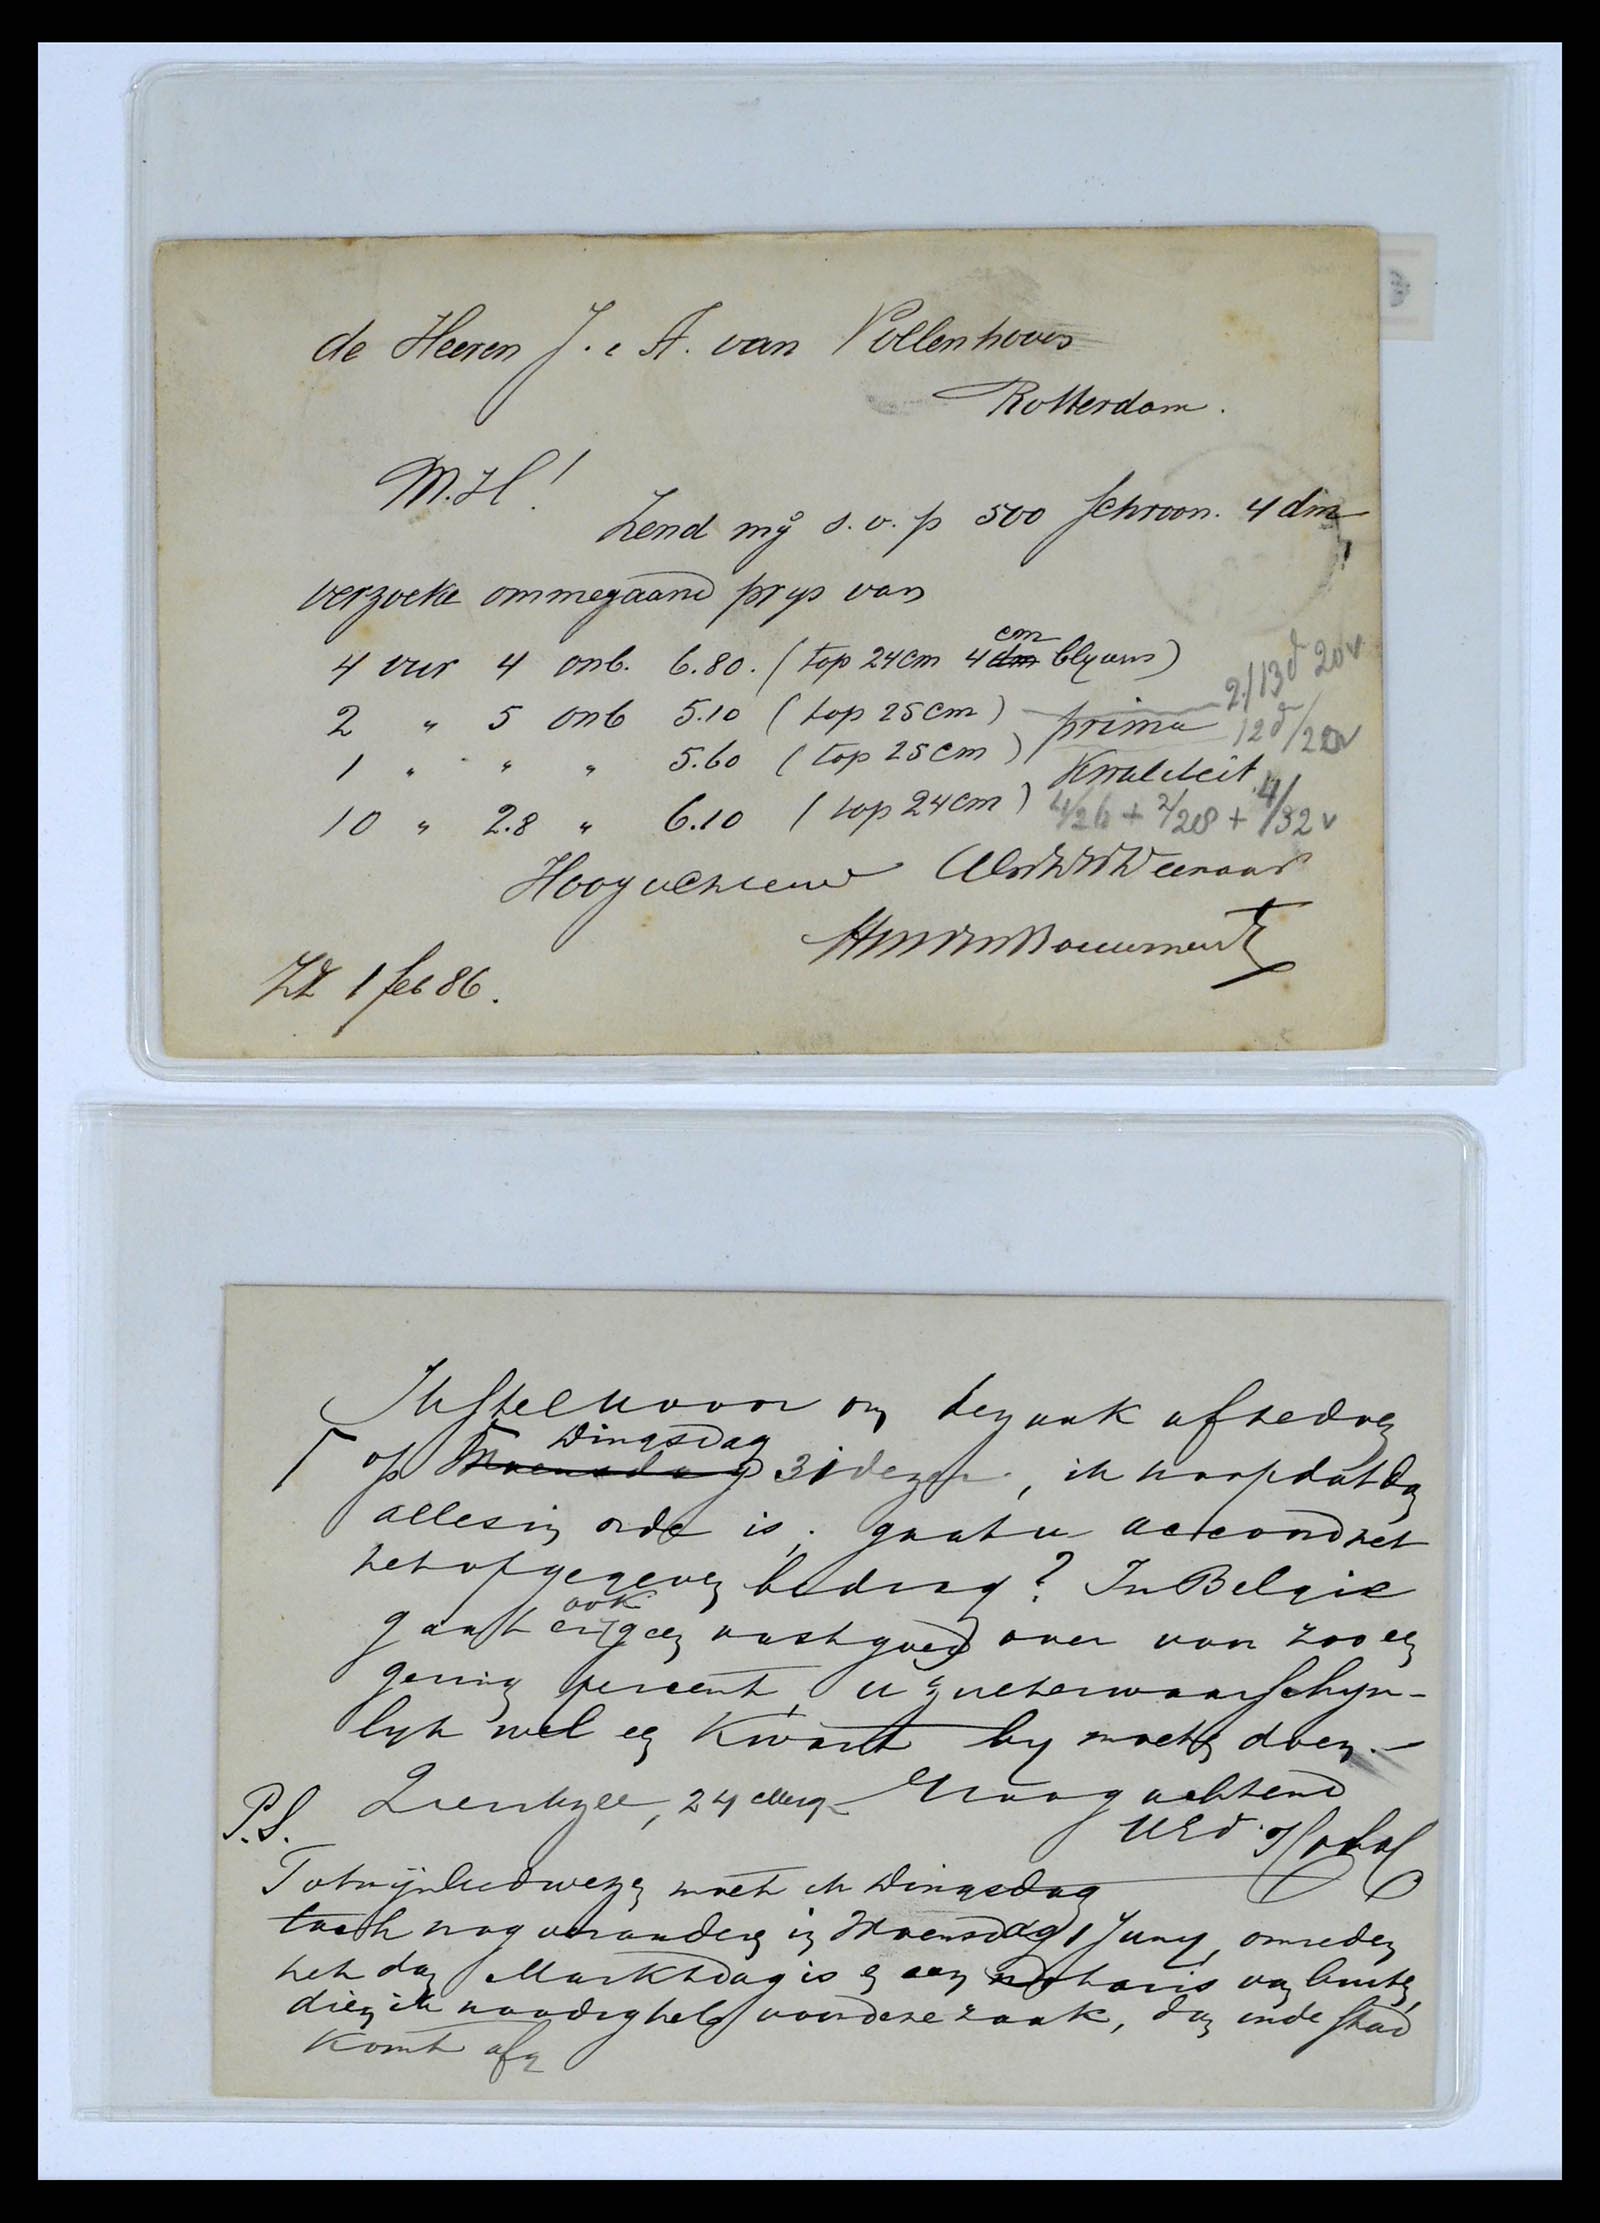 de Heeren J. & A. van Vollenhoven
Rotterdam.
M.H!
Zend mij s.v.p 500 schroon. 4 dm
verzoeke ommegaand prys van
4 vur 4 onb. 6.80. (top 24cm 4 dm cm blyvens)
2 " 5 onb 5.10 (top 25cm) prima 2/13d 20v
1 " " " 5.60 (top 25cm) Kwaliteit 12d/20v
10 " 2.8 " 6.10 (top 24cm) 4/26 + 2/28 + 4/32 v
Hoogachtend
ZZ 1 feb 86.
Ik stel U voor om de zaak af te doen
op Woensdag Dingsdag 31 dezer, ik hoop dat dan
alles in orde is; gaat u accoord met
het opgegeven bedrag? In Belgie
gaat er ook geen vastgoed over voor zoo een
gering percent, u zult er waarschyn-
lyk wel een Kwart by moeten doen.-
Zierikzee, 24 Hoogachtend
UEd
P.S.
Tot mijn leedwezen moet ik Dingsdag
toch nog veranderen in Woensdag 1 Juny, omreden
het dan Marktdag is en een notaris van buiten,
dien ik noodig heb voor deze zaak, dan in de stad
komt